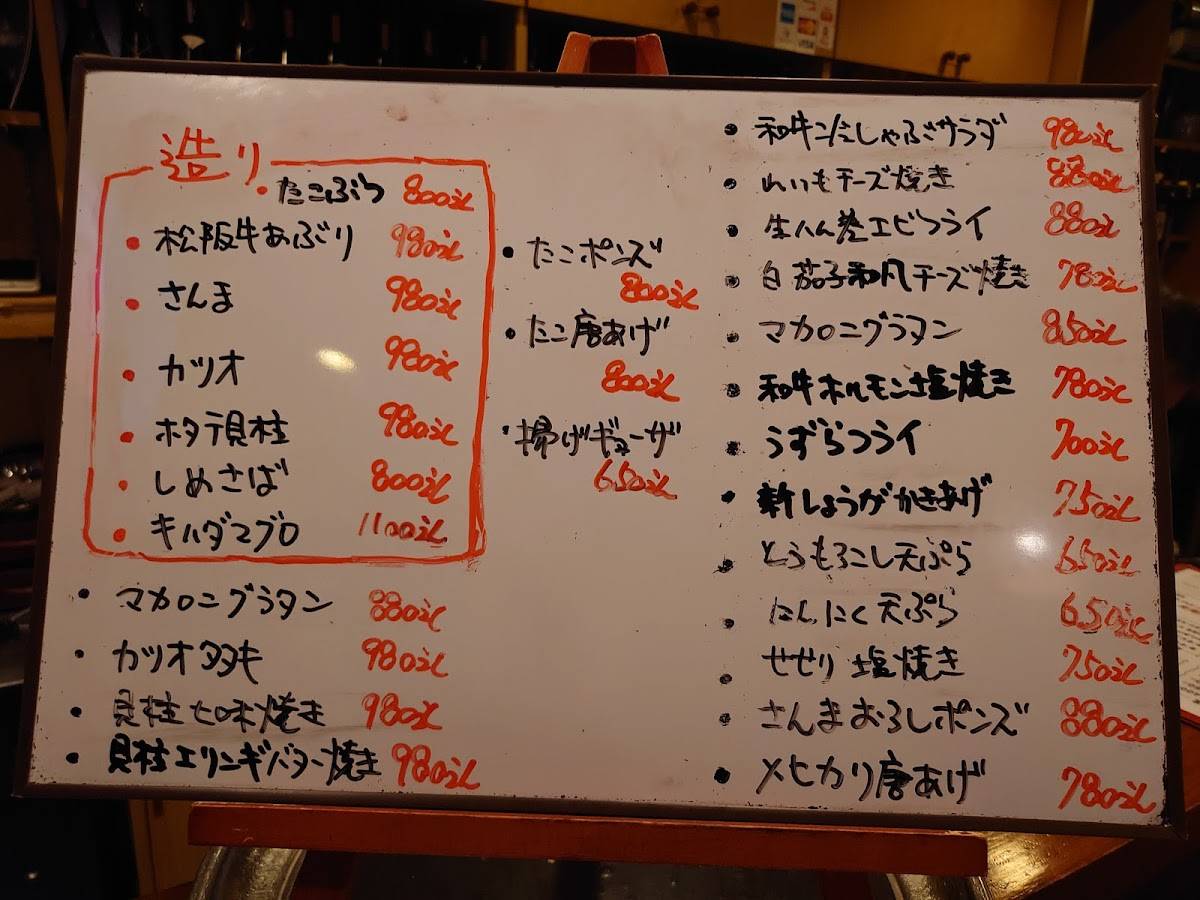 造り
・たこぶつ 800えん
・松阪牛あぶり 980えん
・さんま 980えん
・カツオ 980えん
・ホタテ貝柱 980えん
・しめさば 800えん
・キハダマグロ 1100えん
・マカロニグラタン 880えん
・カツオタタキ 980えん
・貝柱七味焼き 980えん
・貝柱エリンギバター焼き 980えん
・たこポンズ
800えん
・たこ唐あげ
800えん
・揚げギョーザ
650えん
・和牛冷しゃぶサラダ 980えん
・れいもチーズ焼き 880えん
・生ハム巻エビフライ 880えん
・白茄子和風チーズ焼き 780えん
・マカロニグラタン 850えん
・和牛ホルモン塩焼き 780えん
・うずらフライ 700えん
・新しょうがかきあげ 750えん
・とうもろこし天ぷら 650えん
・にんにく天ぷら 650えん
・せせり塩焼き 750えん
・さんまおろしポンズ 880えん
・メヒカリ唐あげ 780えん
VISA